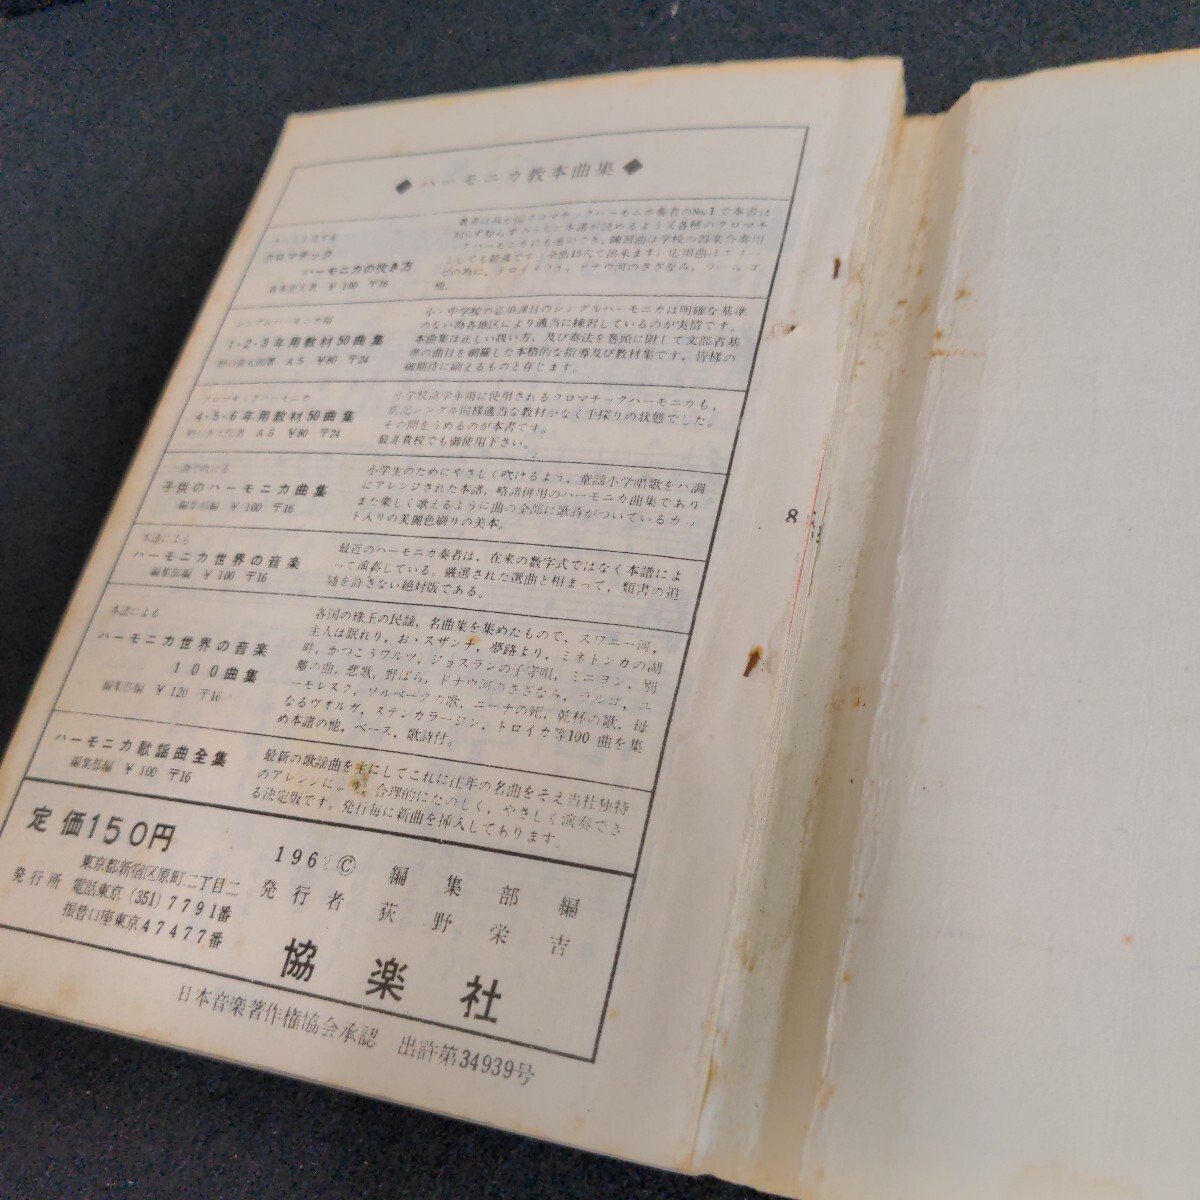 ◆ ハーモニカ教本曲集 ◆
クロマチック
ハーモニカの吹き方
¥100 〒16
著者は我が国クロマチックハーモニカ奏者のNo.1で本書は
知らず知らずのうちに本譜が読めるよう又各種のクロマチ
ックハーモニカにも適用でき、練習曲は学校の器楽合奏用
としても最適です(全部15穴で出来ます)応用曲はエリー
ゼの為に、トロイメライ、ドナウ河のさざなみ、ラールゴ
他。
シングルハーモニカ用
1・2・3年用教材50曲集
A5 ¥80 〒24
小・中学校の必須課目のシングルハーモニカは明確な基準
のない為各地区により適当に練習しているのが実情です。
本曲集は正しい扱い方、及び奏法を巻頭に附して文部省基
準の曲目を網羅した本格的な指導及び教材集です。皆様の
御期待に副えるものと存じます。
クロマチックハーモニカ
4・5・6年用教材50曲集
A5 ¥80 〒24
小学校高学年用に使用されるクロマチックハーモニカも、
前記シングル同様適当な教材がなく手探りの状態でした。
その間をうめるのが本書です。
最非貴校でも御使用下さい。
ハ調で吹ける
子供のハーモニカ曲集
編集部編 ¥100 〒16
小学生のためにやさしく吹けるよう、童謡小学唱歌をハ調
にアレンジされた本譜、略譜併用のハーモニカ曲集であり
また楽しく歌えるように曲の全部に歌詩がついているカッ
ト入りの美麗色刷りの美本。
本譜による
ハーモニカ世界の音楽
編集部編 ¥100 〒16
最近のハーモニカ奏者は、在来の数字式ではなく本譜によ
って演奏している。厳選された選曲と相まって、類書の追
随を許さない絶対版である。
本譜による
ハーモニカ世界の音楽
100曲集
編集部編 ¥120 〒16
各国の珠玉の民謡、名曲集を集めたもので、スワニー河、
主人は眠れり、お・スザンナ、夢路より、ミネトンカの湖
畔、かつこうワルツ、ジョスランの子守唄、ミニヨン、別
離の曲、悲歌、野ばら、ドナウ河のさざなみ、ラルゴ、ユ
ーモレスク、ソルベークの歌、ニーナの死、乾杯の歌、母
なるヴォルガ、ステンカラージン、トロイカ等100曲を集
め本譜の他、ベース、歌詩付。
ハーモニカ歌謡曲全集
編集部編 ¥100 〒16
最新の歌謡曲を主にしてこれに往年の名曲をそえ当社独特
のアレンジにより、合理的にたのしく、やさしく演奏でき
る決定版です。発行毎に新曲を挿入してあります。
定価150円
196 © 編集部編
発行者 荻野栄吉
東京都新宿区原町二丁目二
発行所 電話東京(351)7791番
振替口座東京47477番
協楽社
日本音楽著作権協会承認 出許第34939号
8